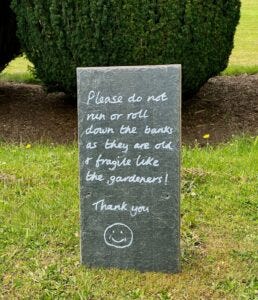 Please do not
run or roll
down the banks
as they are old
& fragile like
the gardeners!
Thank you